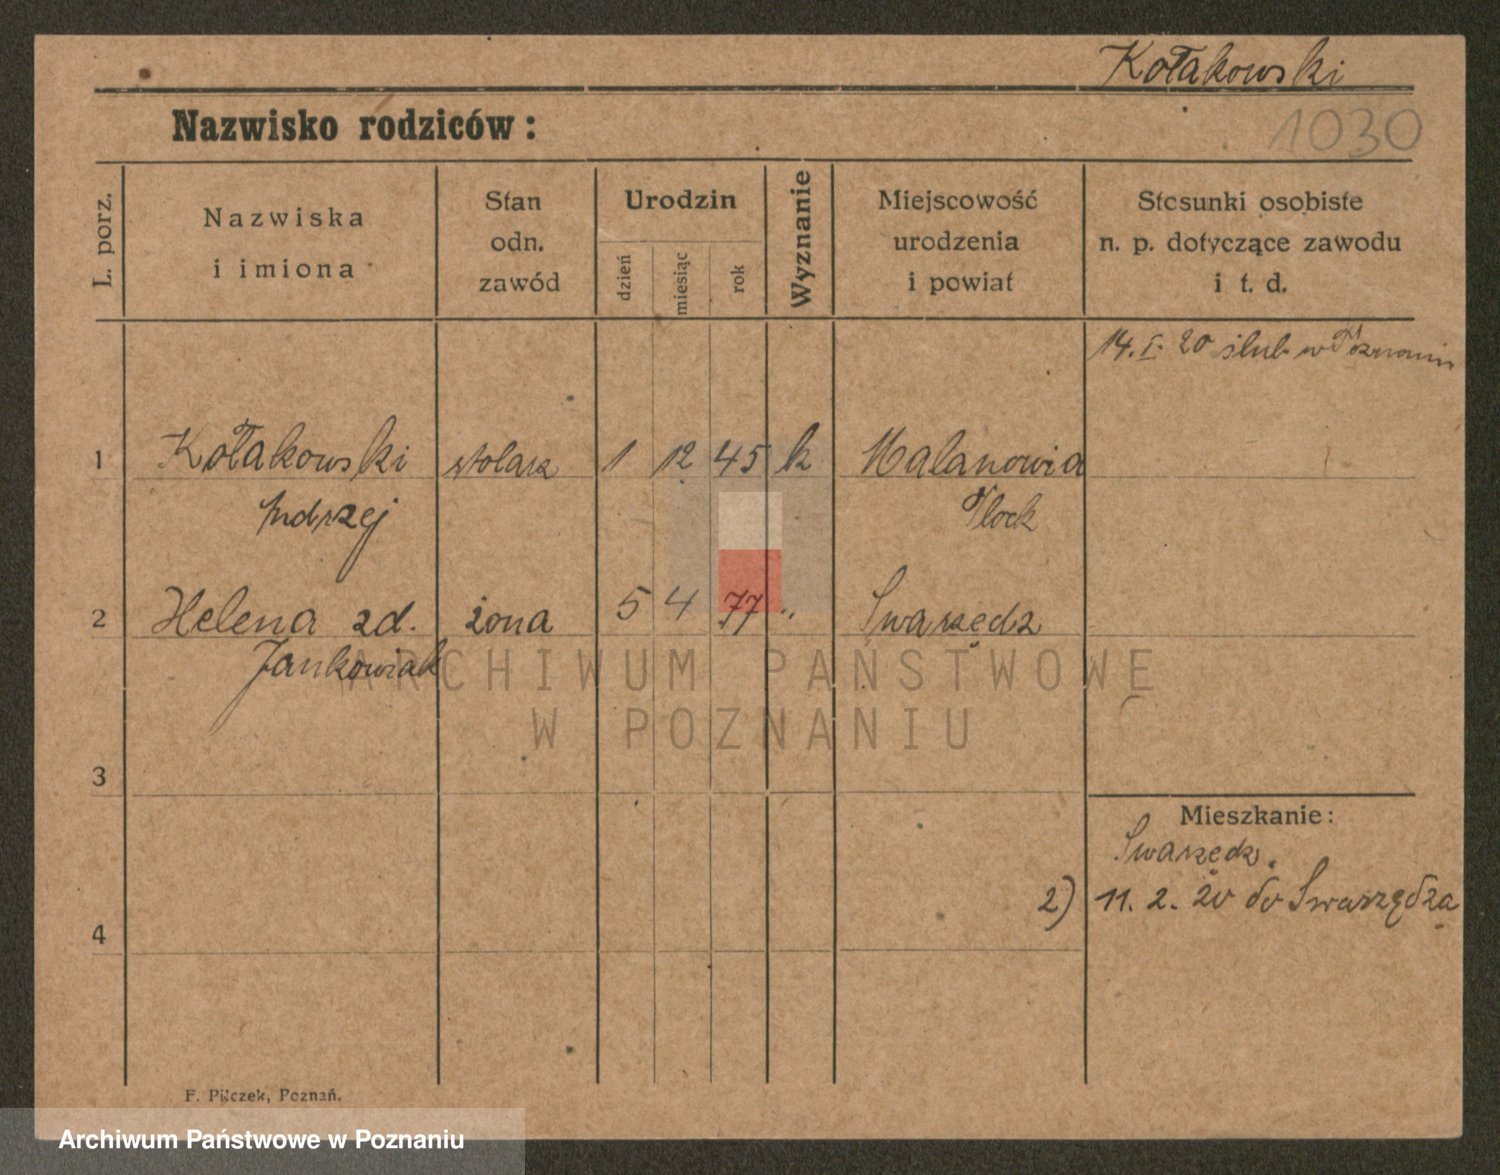 Kołakowski
Nazwisko rodziców:
1030
L. porz.
Nazwiska
i imiona
Stan
odn.
zawód
Urodzin
dzień
miesiąc
rok
Wyznanie
Miejscowość
urodzenia
i powiat
Stosunki osobiste
n. p. dotyczące zawodu
i t. d.
14. I. 20 ślub w Poznaniu
1 Kołakowski stolarz 1 12 45 k Malanowia
Andrzej Płock
2 Helena zd. żona 5 4 77 " Swarzędz
Jankowiak
ARCHIWUM PAŃSTWOWE
W POZNANIU
3
Mieszkanie:
Swarzędz.
2) 11. 2. 20 do Swarzędza
4
F. Pilczek, Poznań.
Archiwum Państwowe w Poznaniu